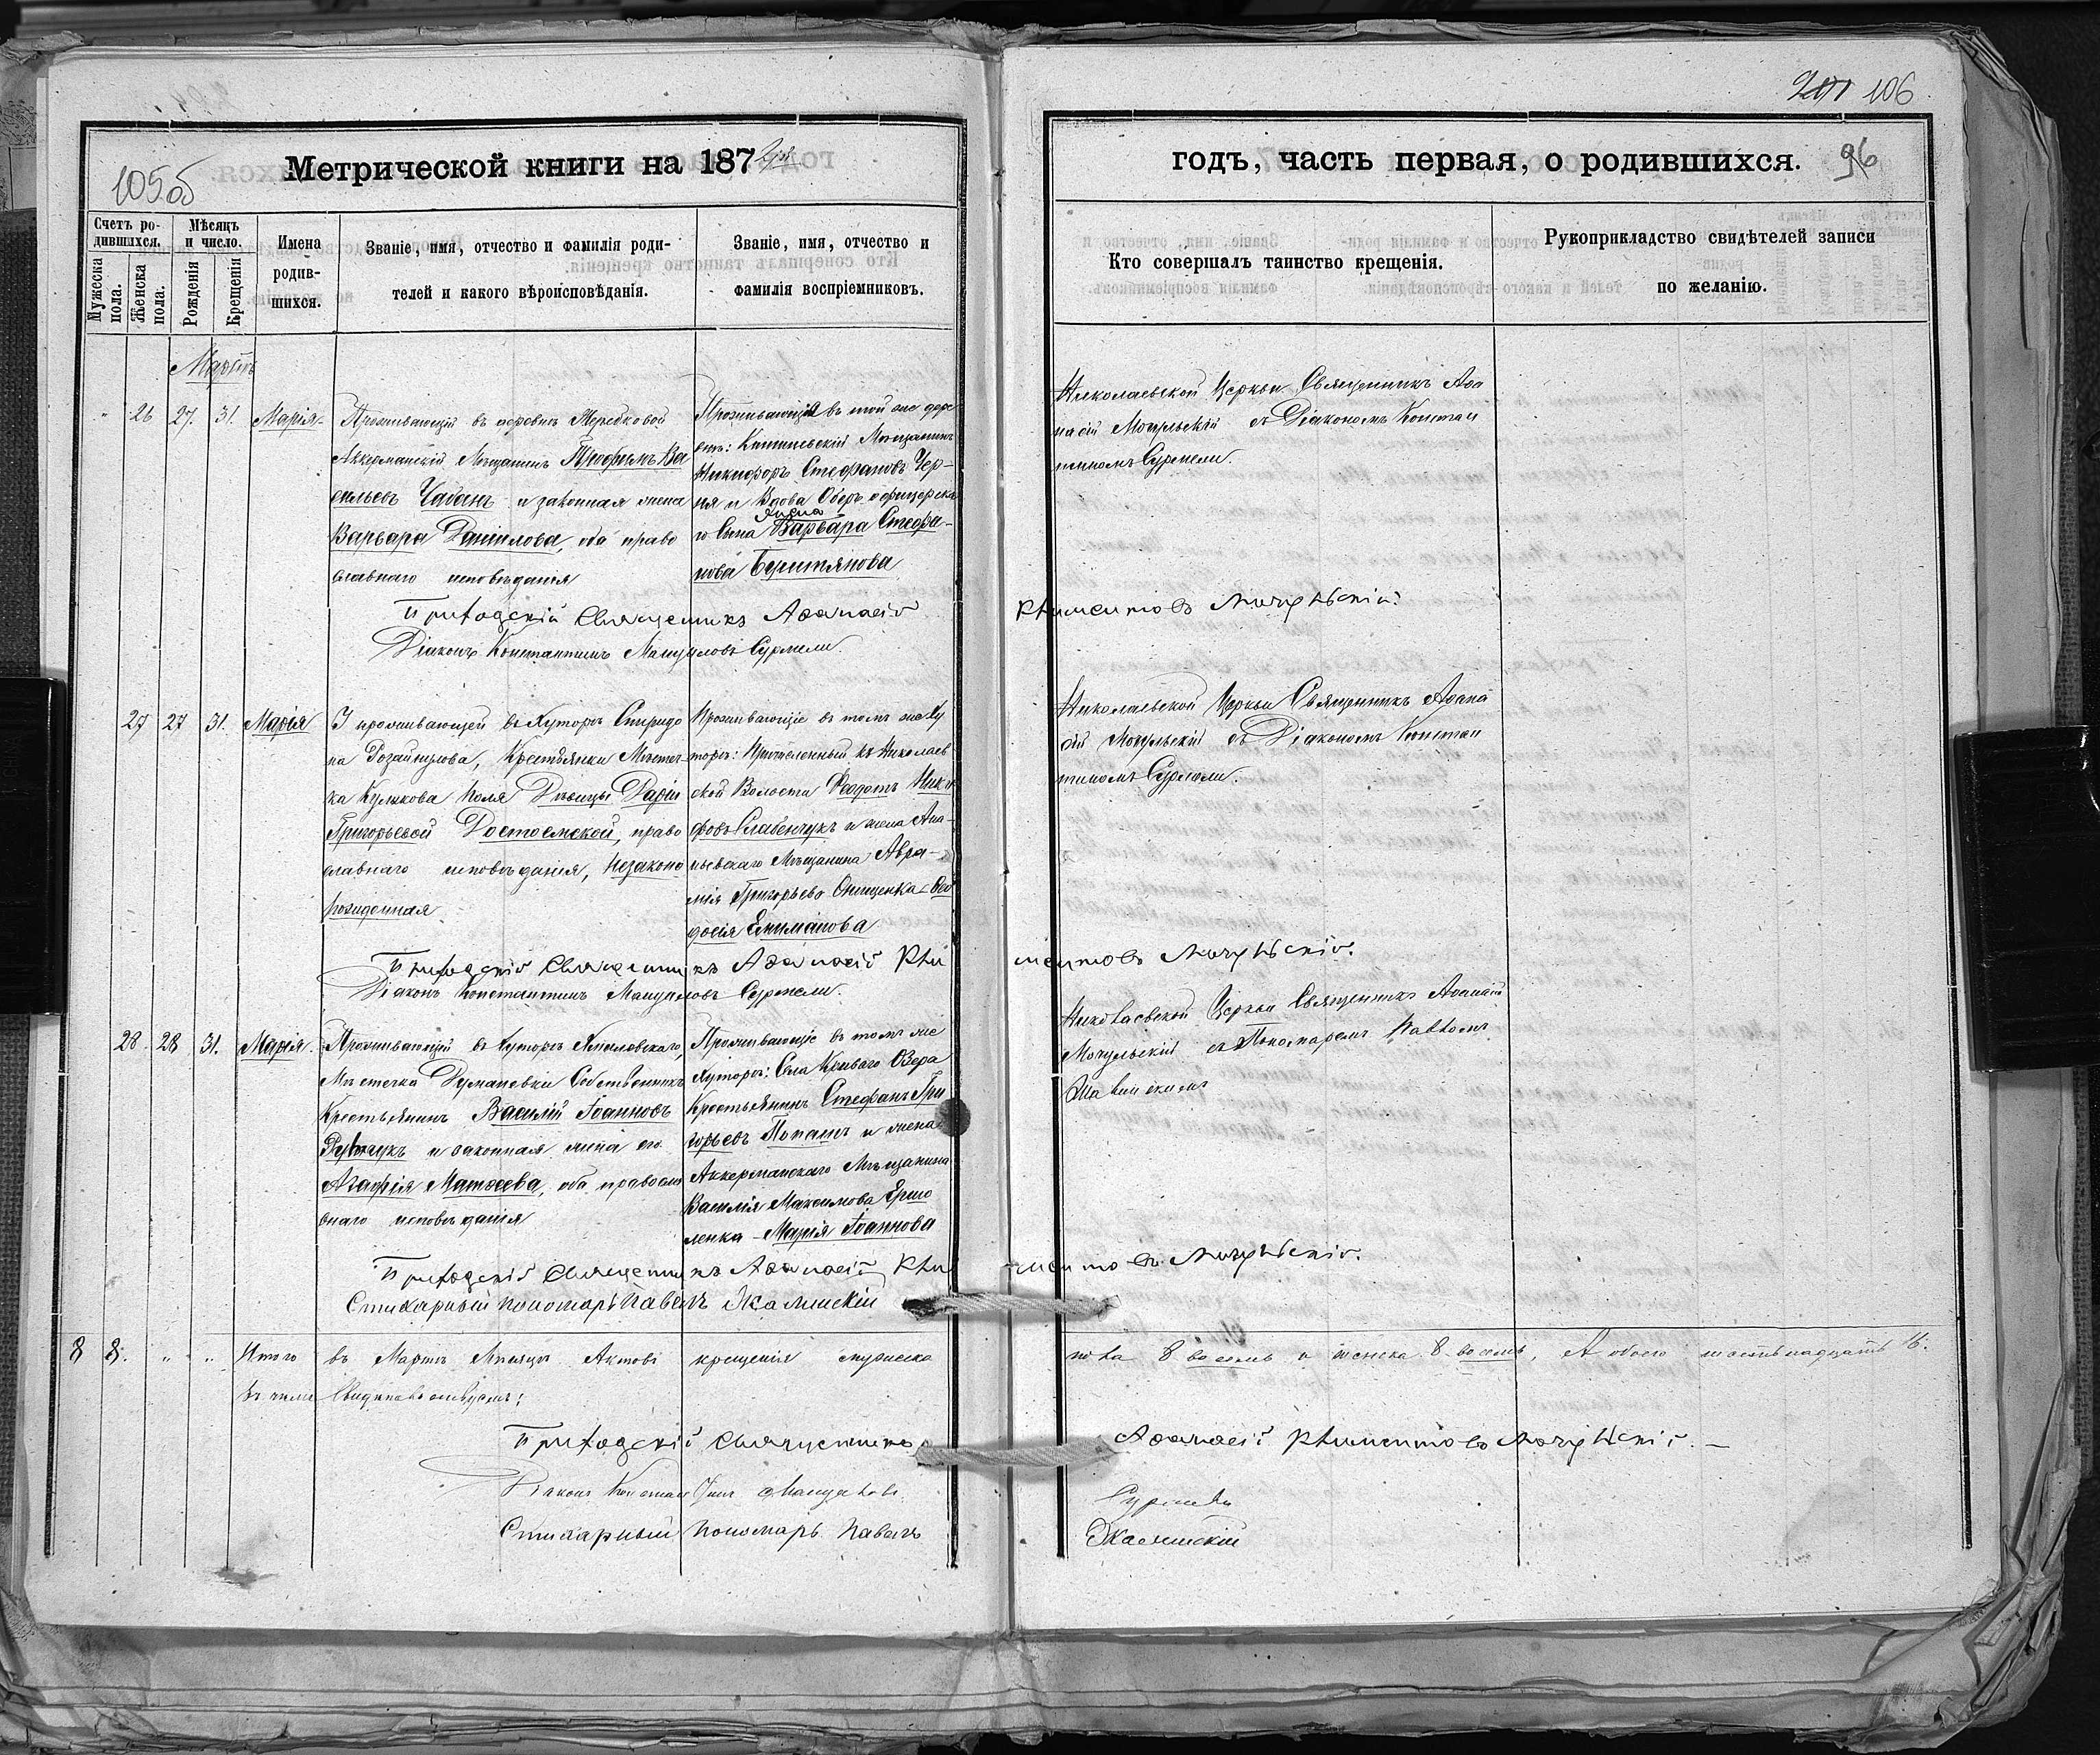 201 106
105об
Метрической книги на 187
годъ, часть первая, о родившихся. 96
Счетъ ро-
дившихся.
Мѣсяцъ
и число.
Мужеска
пола.
Женска
пола.
Рожденія
Крещенія
Имена
родив-
шихся.
Званіе, имя, отчество и фамилія роди-
телей и какого вѣроисповѣданія.
Званіе, имя, отчество и
фамилія воспріемниковъ.
Кто совершалъ таинство крещенія.
Рукоприкладство свидѣтелей записи
по желанію.
Мартъ
" 26 27. 31. Марія
Проживающій въ деревнѣ
Аккерманскій Мѣщанинъ Трофимъ Ва
сильевъ Чабанъ и законная жена
Варвара Даніилова, оба право
славнаго исповѣданія
Проживающія въ той же дере
внѣ: Мѣщанинъ
Никифоръ Стефановъ Чер-
ня и Вдова Оберъ офицерска
го Сына Жена Варвара Стефа-
нова
Николаевской Церкви Священникъ Афа
насій Мочульскій съ Діакономъ Констан
тиномъ Сурмели.
Приходскій Священникъ Афанасій Климентовъ Мочульскій.
Діаконъ Константинъ Мануиловъ Сурмели.
27 27 31. Марія
У проживающей въ Хуторѣ Спиридо
на Крестьянки Мѣстеч-
ка Кулькова Поля Дѣвицы Даріи
Григорьевой право
славнаго исповѣданія, незаконо
рожденная
Проживающіе въ томъ же Ху
торѣ: Причисленный къ Николаев
ской Волости Феодотъ Ники
форовъ и жена Ана-
ньевскаго Мѣщанина Авра-
мія Григорьева Онищенка - Ѳео
досія
Николаевской Церкви Священникъ Афана
сій Мочульскій съ Діакономъ Констан
тиномъ Сурмели.
Приходскій Священникъ Афанасій Климентовъ Мочульскій.
Діаконъ Константинъ Мануиловъ Сурмели.
28. 28 31. Марія.
Проживающій въ Хуторѣ
Мѣстечка Думановки Собственникъ
Крестьянинъ Василій Іоанновъ
и законная жена его
Агафія Матѳеева, оба правосла
внаго исповѣданія
Проживающіе въ томъ же
Хуторѣ: Села Криваго Озера
Крестьянинъ Стефанъ Гри
горьевъ и жена
Аккерманскаго Мѣщанина
Василія Максимова Ермо
ленка - Марія Іоаннова
Николаевской Церкви Священникъ Афанасій
Мочульскій съ Пономаремъ Павломъ
Приходскій Священникъ Афанасій Климентовъ Мочульскій.
Стихарный пономарь Павелъ
8 8. " " Итого въ Мартѣ Мѣсяцѣ Актовъ крещенія мужеска пола 8 восемь и женска 8 восемь, А обоего шестьнадцать 16.
Приходскій Священникъ Афанасій Климентовъ Мочульскій. -
Діаконъ Константинъ Мануиловъ Сурмели
Стихарный пономарь Павелъ